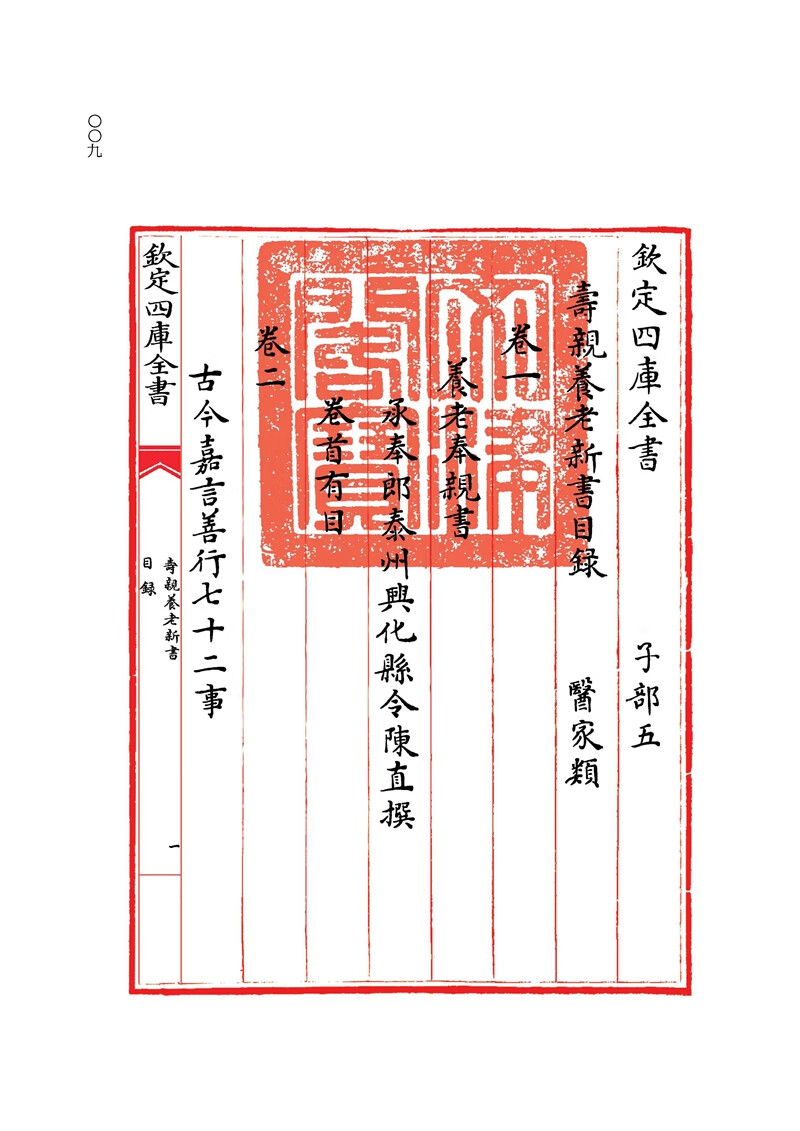 〇〇九
欽定四庫全書 子部五
壽親養老新書目録 醫家類
卷一
養老奉親書
承奉郎泰州興化縣令陳直撰
卷首有目
卷二
古今嘉言善行七十二事
欽定四庫全書
壽親養老新書
目録
一